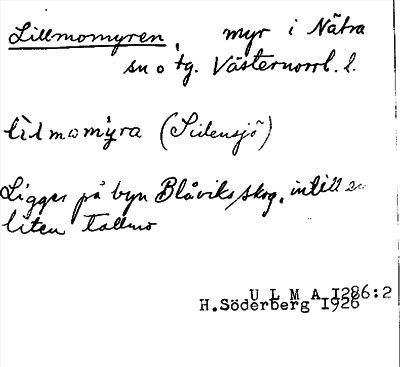 Lillmomyren, myr i Nätra
sn o tg. Västernorrl. l.
lìlmomy̆ra (Sidensjö)
Ligger på byn Blåviks skog, intill en
liten tallmo
U L M A 1286:2
H.Söderberg 1926